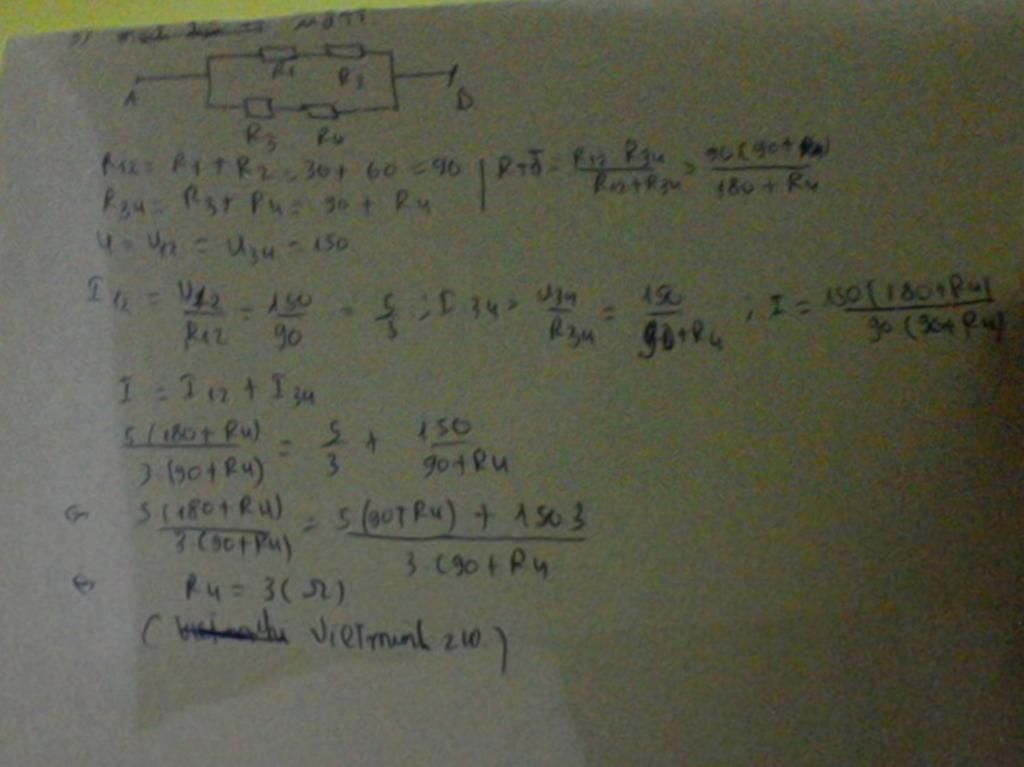 R1 R3
A B
R3 R4
R12 = R1 + R2 = 30 + 60 = 90 | RTĐ = R12 . R34 / R12 + R34 = 90(90 + R4) / 180 + R4
R34 = R3 + R4 = 90 + R4
U = U12 = U34 = 150
I12 = U12 / R12 = 150 / 90 = 5 / 3 ; I34 = U34 / R34 = 150 / 90 + R4 ; I = 150(180 + R4) / 90(90 + R4)
I = I12 + I34
5(180 + R4) / 3.(90 + R4) = 5 / 3 + 150 / 90 + R4
5(180 + R4) / 3.(90 + R4) = 5(90 + R4) + 150 3 / 3.(90 + R4
R4 = 3 (Ω)
( Vietminh 210 )